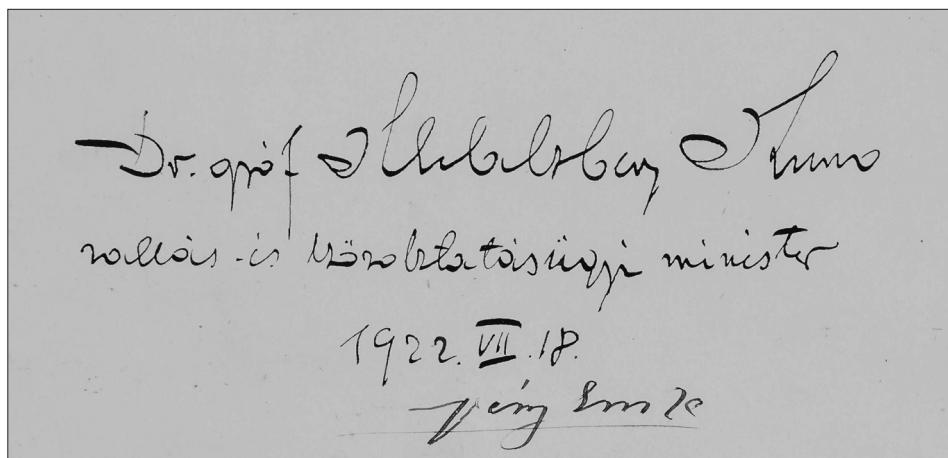 Dr. gróf Klebelsberg Kuno
vallás- és közoktatásügyi minister
1922. VII. 18.